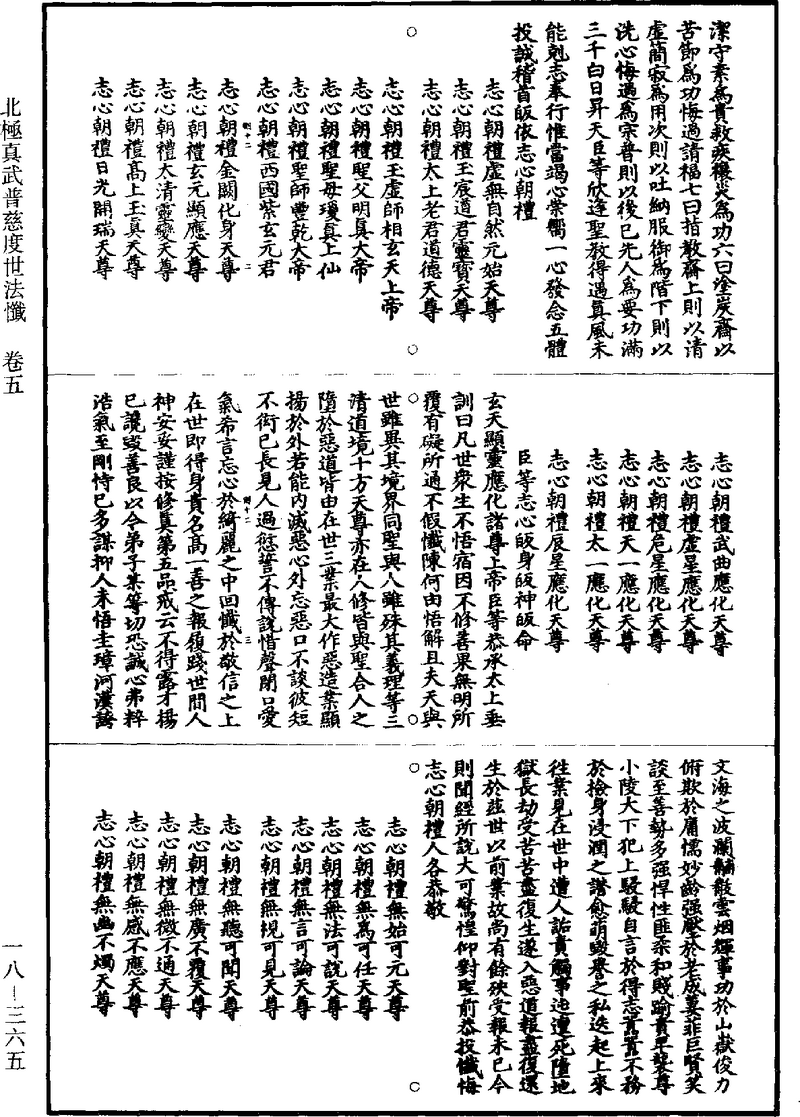 潔守素為貴救疾禳災為功六曰塗炭齋以
苦節為功悔過請福七曰指教齋上則以清
虛簡寂為用次則以吐納服御為階下則以
洗心悔過為宗普則以後已先人為要功滿
三千白日昇天臣等欣逢聖教得遇真風未
能剋志奉行惟當竭心崇嚮一心發念五體
投誠稽首皈依志心朝禮
志心朝禮虛無自然元始天尊
志心朝禮玉宸道君靈寶天尊
志心朝禮太上老君道德天尊
志心朝禮玉虛師相玄天上帝
志心朝禮聖父明真大帝
志心朝禮聖母瓊真上仙
志心朝禮聖師豐乾大帝
志心朝禮西國紫玄元君
志心朝禮金闕化身天尊
志心朝禮玄元顯應天尊
志心朝禮大清靈變天尊
志心朝禮高上玉真天尊
志心朝禮日光開瑞天尊
志心朝禮武曲應化天尊
志心朝禮虛星應化天尊
志心朝禮危星應化天尊
志心朝禮天一應化天尊
志心朝禮太一應化天尊
志心朝禮辰星應化天尊
臣等志心皈身皈神皈命
玄天顯靈應化諸尊上帝臣等恭承太上垂
訓曰凡世衆生不悟宿因不修善果無明所
覆有礙所通不假懺陳何由悟解且夫天與
世雖異其境界同聖與人雖殊其義理等三
清道境十方天尊亦在人修皆與聖合人之
墮於惡道皆由在世三業最大作惡造業顯
揚於外若能內滅惡心外忘惡口不談彼短
不衒已長見人過愆誓不傳說惜聲閉口愛
氣希言忘心於綺麗之中回懺於敬信之上
在世即得身貴名高一善之報復踐世間人
神安妥謹按修真第五品戒云不得露才揚
已讒毀善良以今弟子某等切恐誠心弗粹
浩氣至剛恃已多謀抑人未悟圭璋河漢詩
文海之波瀾黼黻雲烟輝事功於山嶽俊力
俯欺於庸懦妙齡强壓於老成萋菲巨賢笑
談至善勢多强悍性匪柔和賤踰貴卑襲尊
小陵大下犯上駸駸自言於得志囂囂不務
於撿身浸潤之譖愈萌毀譽之私迭起上來
徃業見在世中遭人詬責觸事迍邅死墮地
獄長劫受苦苦盡復生遂入惡道報盡復還
生於茲世以前業故尚有餘殃受報未已今
則聞經所說大可驚惶仰對聖前恭投懺悔
志心朝禮人各恭敬
志心朝禮無始可元天尊
志心朝禮無為可任天尊
志心朝禮無法可說天尊
志心朝禮無言可論天尊
志心朝禮無視可見天尊
志心朝禮無聽可聞天尊
志心朝禮無廣不覆天尊
志心朝禮無微不通天尊
志心朝禮無感不應天尊
志心朝禮無幽不燭天尊
北極真武普慈度世法懺　卷五
一八—三六五